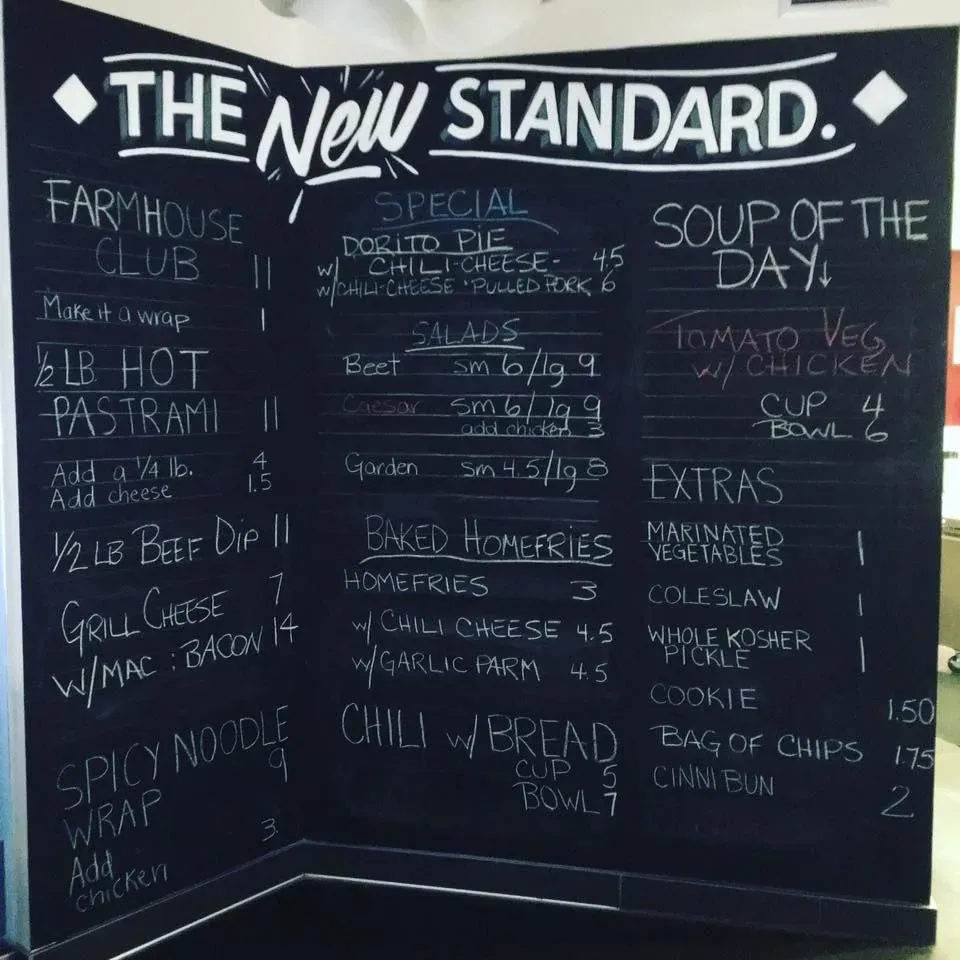 THE New STANDARD.
FARMHOUSE
CLUB 11
Make it a wrap 1
1/2 LB HOT
PASTRAMI 11
Add a 1/4 lb. 4
Add cheese 1.5
1/2 LB BEEF DIP 11
GRILL CHEESE 7
W/MAC : BACON 14
SPICY NOODLE
9
WRAP
Add 3.
chicken
SPECIAL
DORITO PIE
w/ CHILI-CHEESE- 4.5
w/CHILI-CHEESE 'PULLED PORK 6
SALADS
Beet sm 6/lg 9
Caesar sm 6/lg 9
add chicken 3
Garden sm 4.5/lg 8
BAKED HOMEFRIES
HOMEFRIES 3
w/ CHILI CHEESE 4.5
w/GARLIC PARM 4.5
CHILI w/ BREAD
CUP 5
BOWL 7
SOUP OF THE
DAY↓
TOMATO VEG
W/ CHICKEN
CUP 4
BOWL 6
EXTRAS
MARINATED
VEGETABLES 1
COLESLAW 1
WHOLE KOSHER
PICKLE 1
COOKIE 1.50
BAG OF CHIPS 1.75
CINNIBUN 2